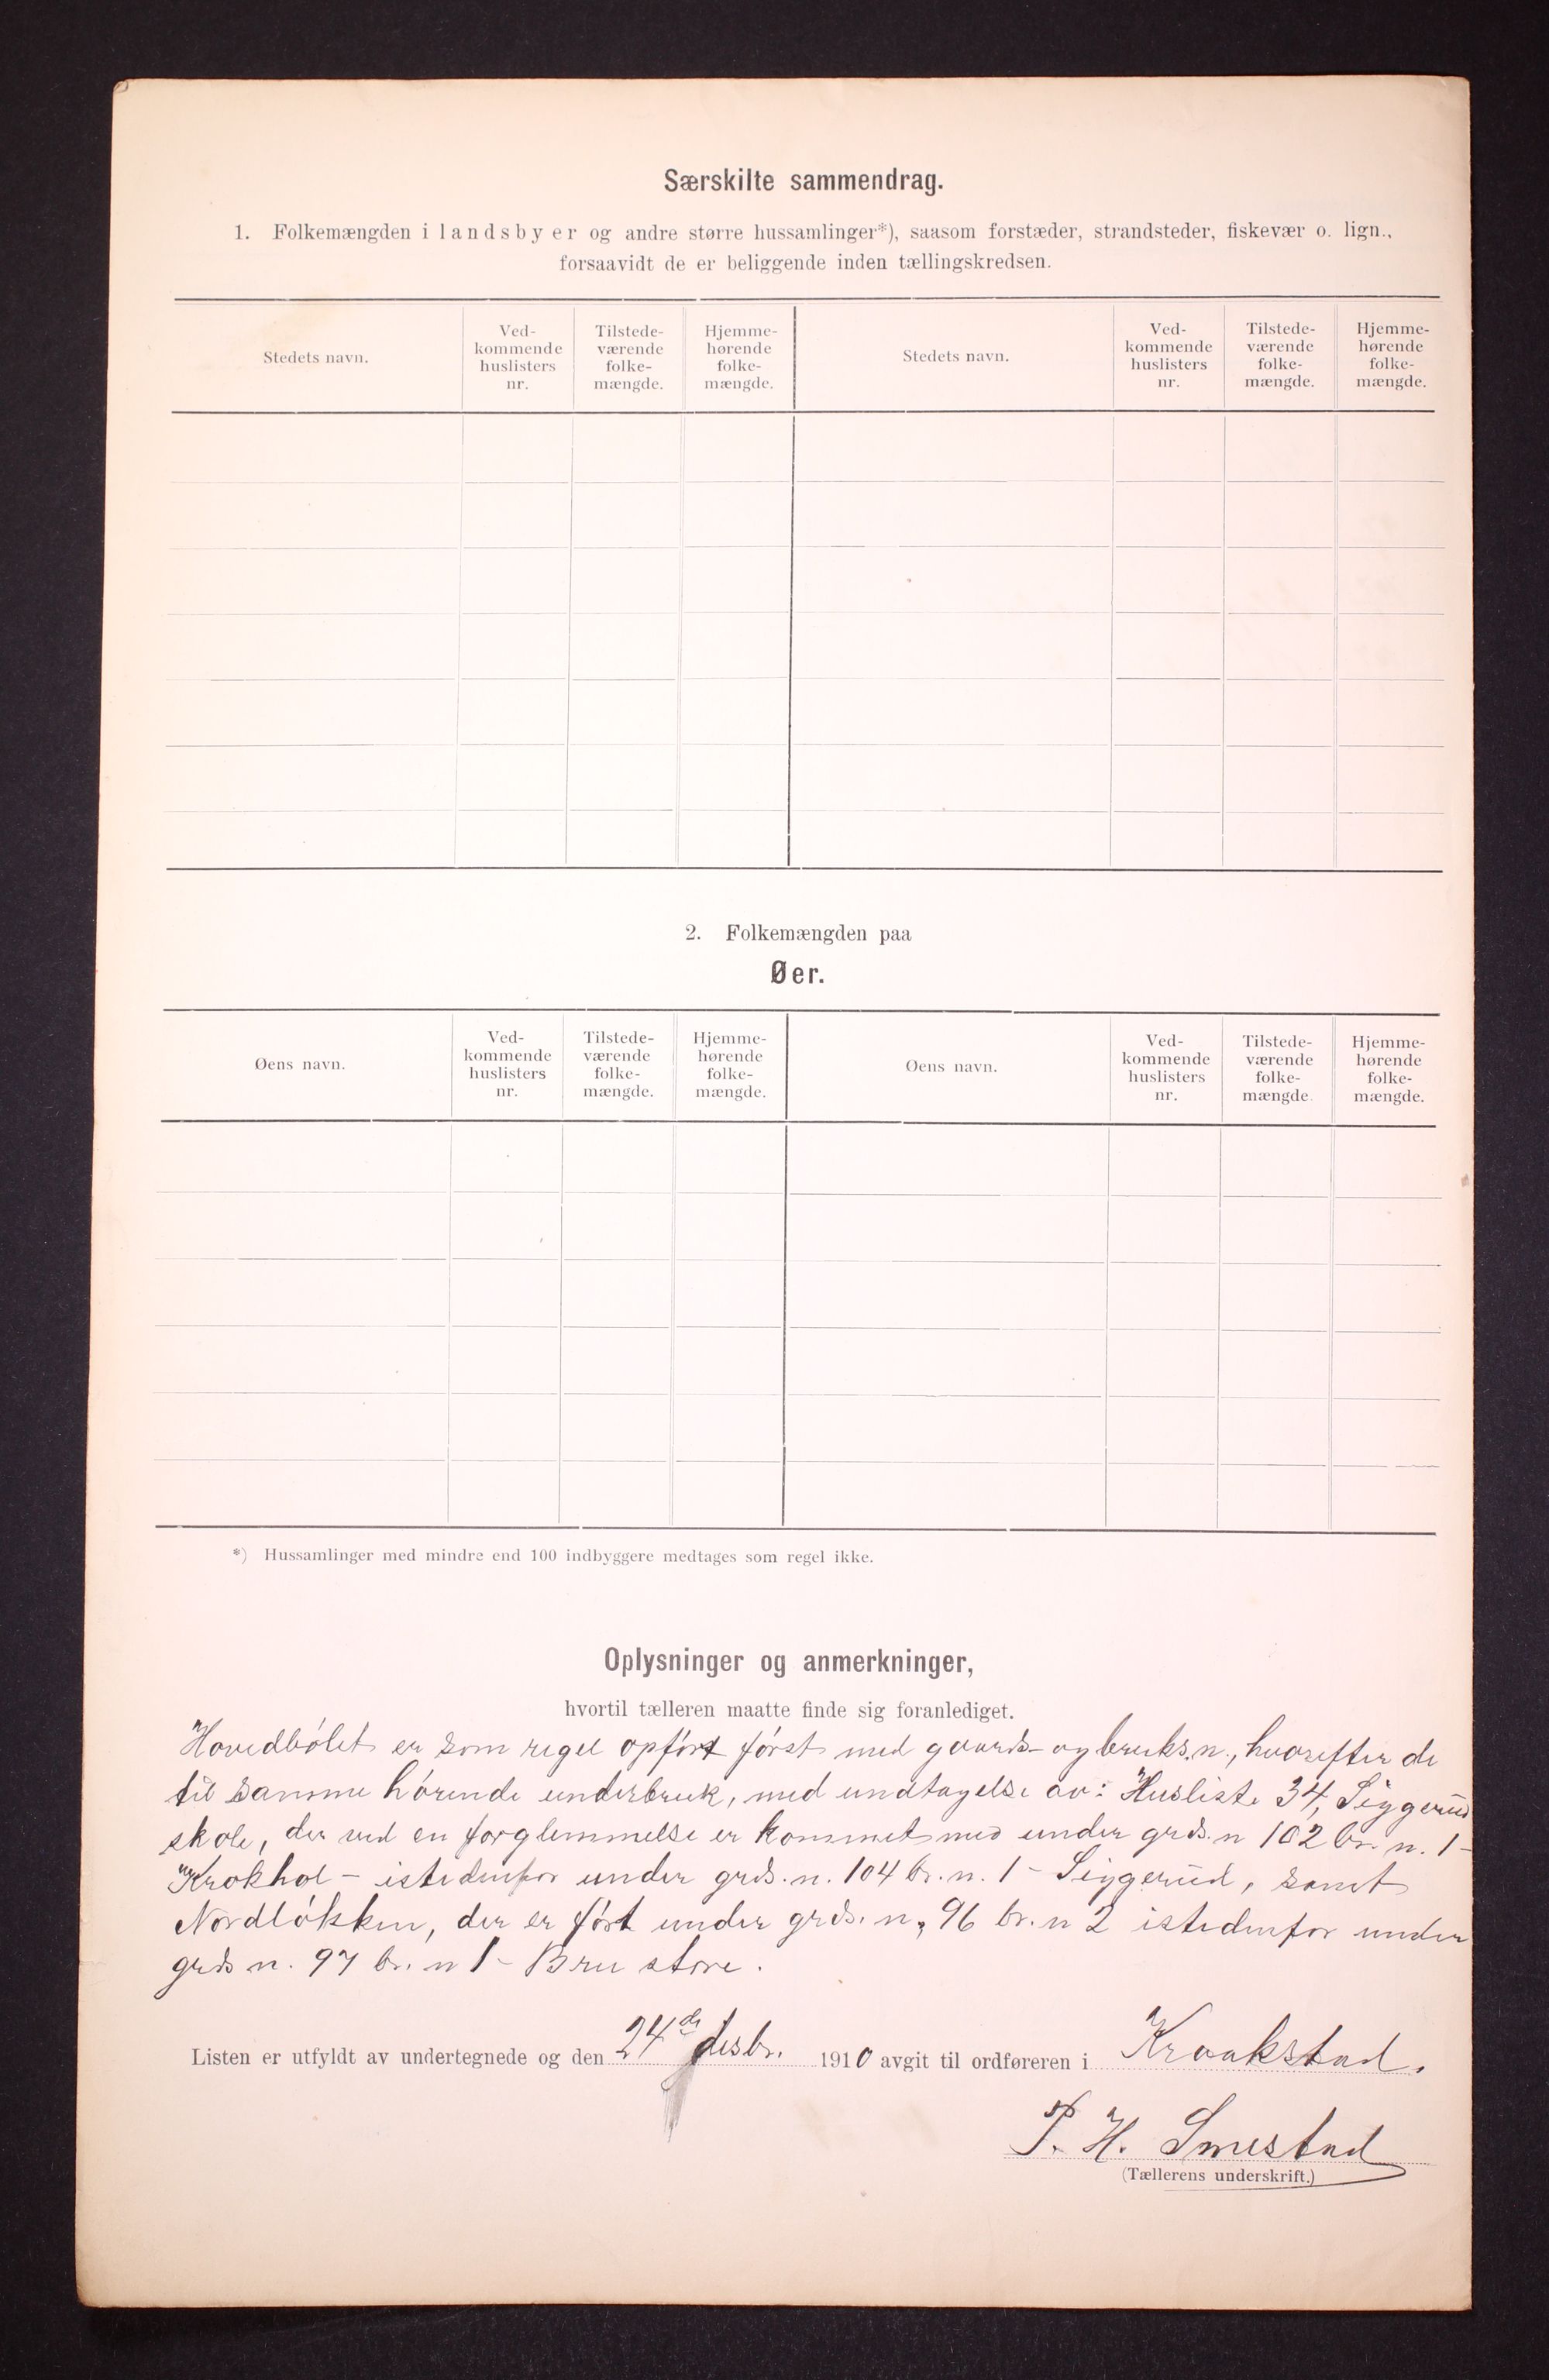 Særskilte sammendrag.
1. Folkemængden i landsbyer og andre større hussamlinger*), saasom forstæder, strandsteder, fiskevær o. lign.,
forsaavidt de er beliggende inden tællingskredsen.
Stedets navn.
Ved-
kommende
huslisters
nr.
Tilstede-
værende
folke-
mængde.
Hjemme-
hørende
folke-
mængde.
Stedets navn.
Ved-
kommende
huslisters
nr.
Tilstede-
værende
folke-
mængde.
Hjemme-
hørende
folke-
mængde.
2. Folkemængden paa
Øer.
Øens navn.
Ved-
kommende
huslisters
nr.
Tilstede-
værende
folke-
mængde.
Hjemme-
hørende
folke-
mængde.
Øens navn.
Ved-
kommende
huslisters
nr.
Tilstede-
værende
folke-
mængde.
Hjemme-
hørende
folke-
mængde.
*) Hussamlinger med mindre end 100 indbyggere medtages som regel ikke.
Oplysninger og anmerkninger,
hvortil tælleren maatte finde sig foranlediget.
Hovedbølet er som regel opført først med gaards- og bruks.n., hvorefter de
til samme hørende underbruk, med undtagelse av: Husliste 34, Siggerud
skole, der ved en forglemmelse er kommet med under grds. n 102 br. n. 1 -
Krokhol - istedenfor under grds. n. 104 br. n. 1 - Siggerud, samt
Nordløkken, der er ført under grds. n. 96 br. n 2 istedenfor under
grds n. 97 br. n 1 - Bru store.
Listen er utfyldt av undertegnede og den 24de desbr. 1910 avgit til ordføreren i Kraakstad.
P. H. Smestad
(Tællerens underskrift.)